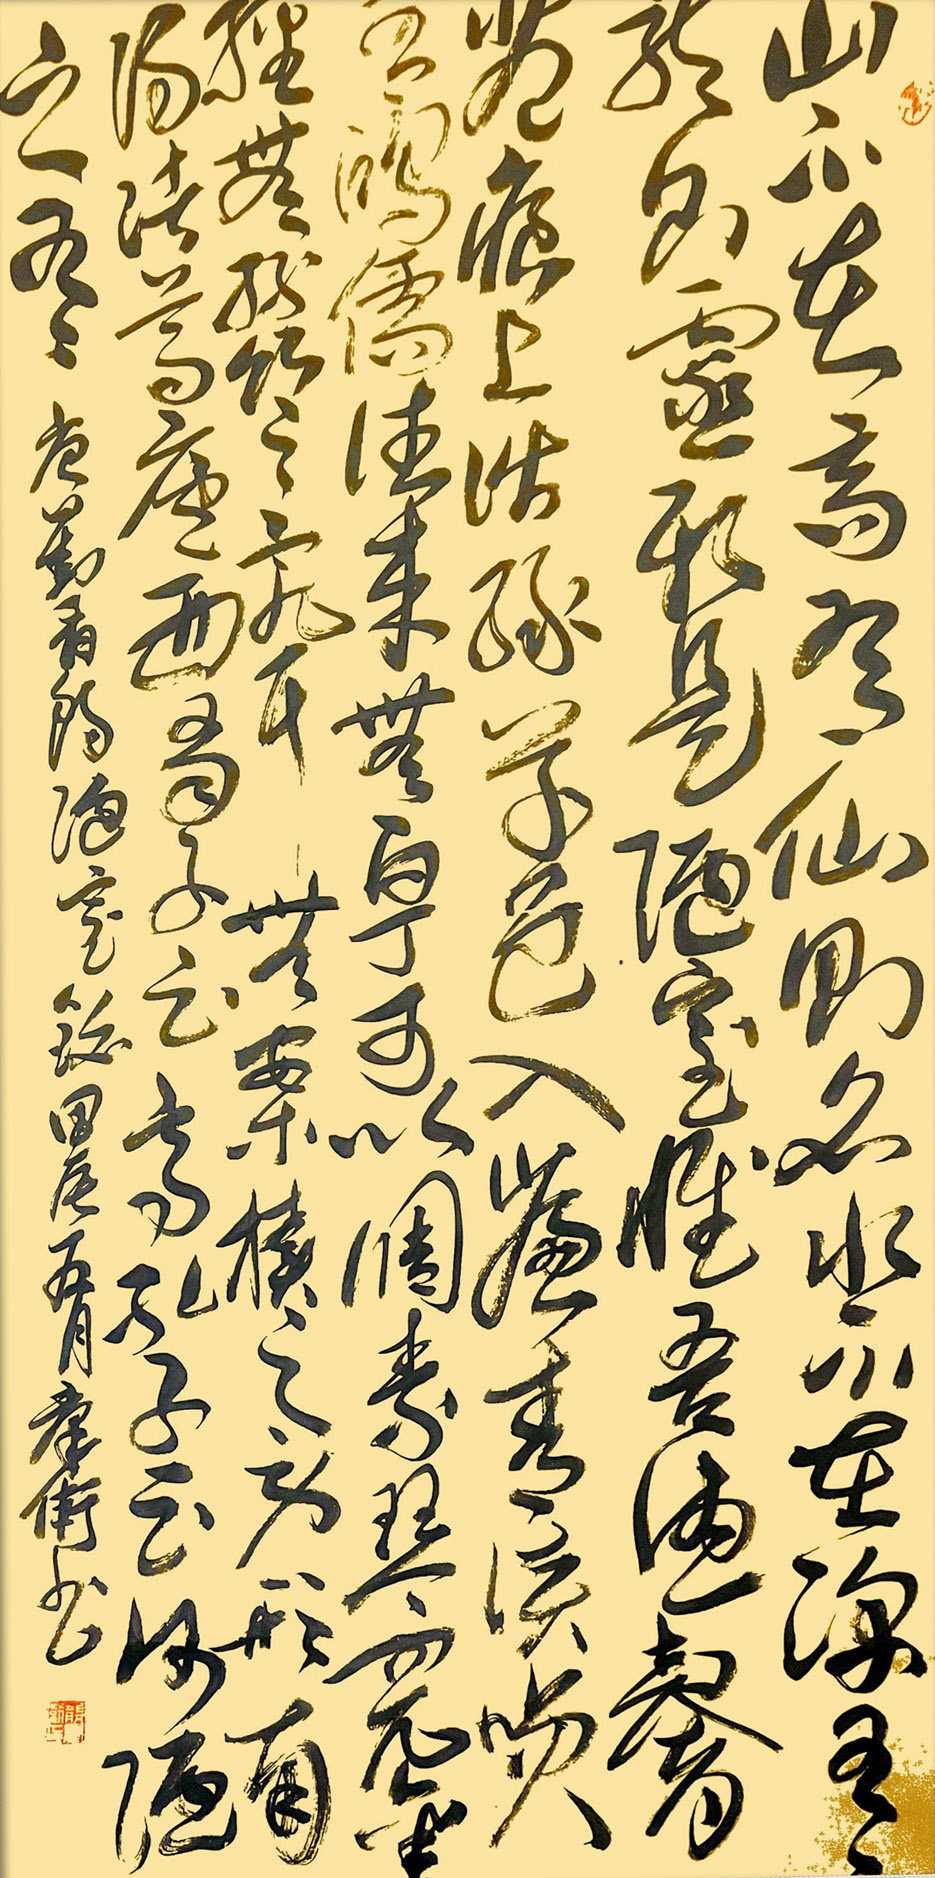 山不在高有仙則名水不在深有
龍則靈斯是陋室惟吾德馨
苔痕上階綠草色入簾青談笑
有鴻儒往來無白丁可以調素琴閱金
經無絲竹之亂耳無案牘之勞形南
陽諸葛廬西蜀子云亭孔子云何陋
之有 唐劉禹錫陋室銘甲辰五月羣衛書